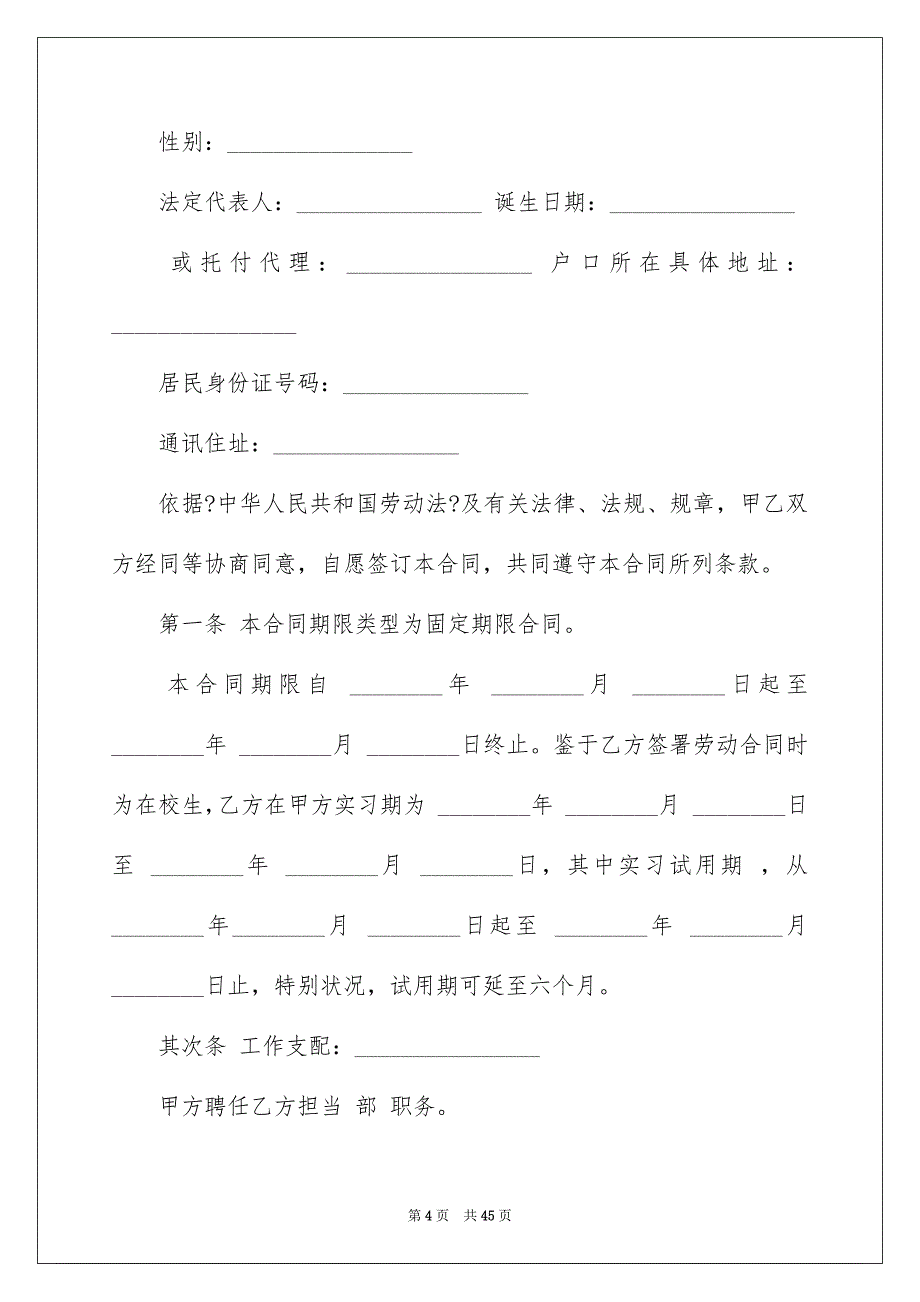 性别：________________
法定代表人：________________ 诞生日期：________________
或托付代理：________________ 户口所在具体地址：
________________
居民身份证号码：________________
通讯住址：________________
依据?中华人民共和国劳动法?及有关法律、法规、规章，甲乙双
方经同等协商同意，自愿签订本合同，共同遵守本合同所列条款。
第一条 本合同期限类型为固定期限合同。
本合同期限自 ________年 ________月 ________日起至
________年 ________月 ________日终止。鉴于乙方签署劳动合同时
为在校生，乙方在甲方实习期为 ________年 ________月 ________日
至 ________年 ________月 ________日，其中实习试用期 ，从
________年________月 ________日起至 ________年 ________月
________日止，特别状况，试用期可延至六个月。
其次条 工作支配：________________
甲方聘任乙方担当 部 职务。
第 4 页 共 45 页